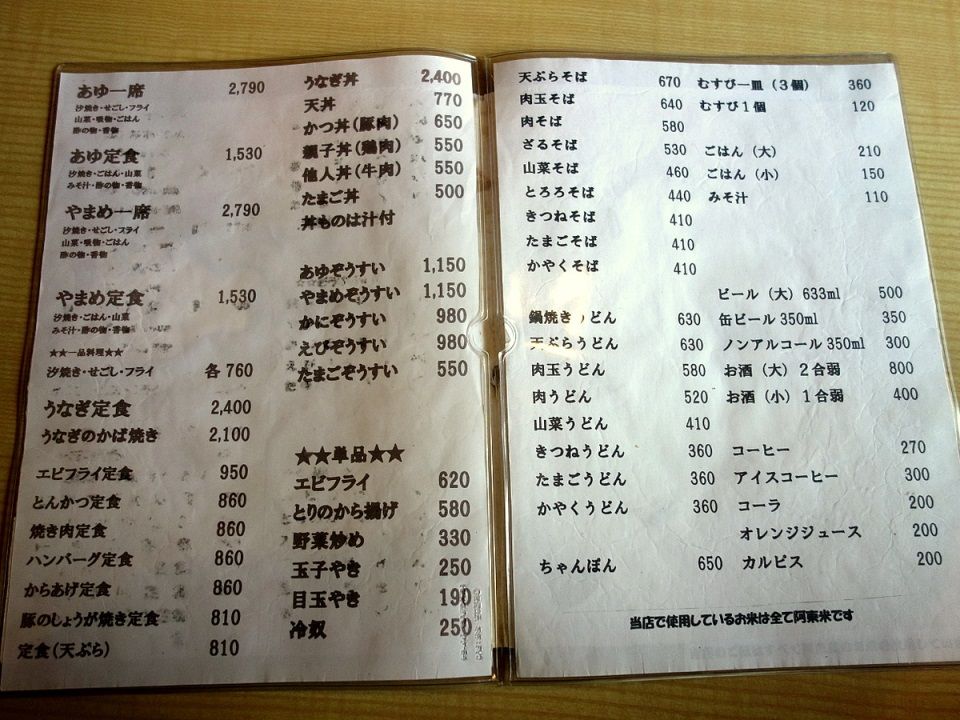 あゆ一席 2,790
汐焼き・せごし・フライ
山菜・吸物・ごはん
酢の物・香物
あゆ定食 1,530
汐焼き・ごはん・山菜
みそ汁・酢の物・香物
やまめ一席 2,790
汐焼き・せごし・フライ
山菜・吸物・ごはん
酢の物・香物
やまめ定食 1,530
汐焼き・ごはん・山菜
みそ汁・酢の物・香物
★★一品料理★★
汐焼き・せごし・フライ 各760
うなぎ定食 2,400
うなぎのかば焼き 2,100
エビフライ定食 950
とんかつ定食 860
焼き肉定食 860
ハンバーグ定食 860
からあげ定食 860
豚のしょうが焼き定食 810
定食(天ぷら) 810
うなぎ丼 2,400
天丼 770
かつ丼(豚肉) 650
親子丼(鶏肉) 550
他人丼(牛肉) 550
たまご丼 500
丼ものは汁付
あゆぞうすい 1,150
やまめぞうすい 1,150
かにぞうすい 980
えびぞうすい 980
たまごぞうすい 550
★★単品★★
エビフライ 620
とりのから揚げ 580
野菜炒め 330
玉子やき 250
目玉やき 190
冷奴 250
天ぷらそば 670
肉玉そば 640
肉そば 580
ざるそば 530
山菜そば 460
とろろそば 440
きつねそば 410
たまごそば 410
かやくそば 410
鍋焼きうどん 630
天ぷらうどん 630
肉玉うどん 580
肉うどん 520
山菜うどん 410
きつねうどん 360
たまごうどん 360
かやくうどん 360
ちゃんぽん 650
むすび一皿(3個) 360
むすび1個 120
ごはん(大) 210
ごはん(小) 150
みそ汁 110
ビール(大)633ml 500
缶ビール350ml 350
ノンアルコール350ml 300
お酒(大)2合弱 800
お酒(小)1合弱 400
コーヒー 270
アイスコーヒー 300
コーラ 200
オレンジジュース 200
カルピス 200
当店で使用しているお米は全て阿東米です